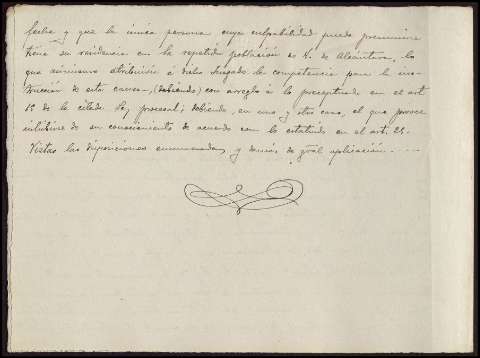 fecha y que la única persona cuya culpabilidad puede presumirse
tiene su residencia en la repetida población es V. de Alcántara, lo
que asimismo atribuiria á dicho Juzgado la competencia para la ins-
trucción de esta causa, (debiendo) con arreglo á lo preceptuado en el art.
15 de la citada ley procesal; debiendo, en uno y otro caso, el que provee
inhibirse de su conocimiento de acuerdo con lo estatuido en el art. 25.
Vistas las disposiciones enumeradas y demás de gral aplicación. - - -